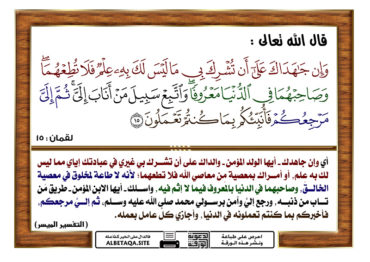 قال الله تعالى :
وَإِن جَٰهَدَاكَ عَلَىٰٓ أَن تُشْرِكَ بِى مَا لَيْسَ لَكَ بِهِۦ عِلْمٌ فَلَا تُطِعْهُمَاۖ
وَصَاحِبْهُمَا فِى ٱلدُّنْيَا مَعْرُوفًاۖ وَٱتَّبِعْ سَبِيلَ مَنْ أَنَابَ إِلَىَّۚ ثُمَّ إِلَىَّ
مَرْجِعُكُمْ فَأُنَبِّئُكُم بِمَا كُنتُمْ تَعْمَلُونَ ١٥
لقمان : ١٥
أي وإن جاهدك۔ أيها الولد المؤمن۔ والداك على أن تشرك بي غيري في عبادتك إياي مما ليس
لك به علم، أو أمراك بمعصية من معاصي الله فلا تطعهما؛ لأنه لا طاعة لمخلوق في معصية
الخالق، وصاحبهما في الدنيا بالمعروف فيما لا إثم فيه، واسلك۔ أيها الابن المؤمن۔ طريق من
تاب من ذنبه، ورجع إليَّ وآمن برسولي محمد صلى الله عليه وسلم، ثم إليَّ مرجعكم،
فأخبركم بما كنتم تعملونه في الدنيا، وأجازي كل عامل بعمله.
( التفسير الميسر)
احرص على طباعة
ونشر هذه الورقة
فالدال على الخير كفاعله
ALBETAQA.SITE